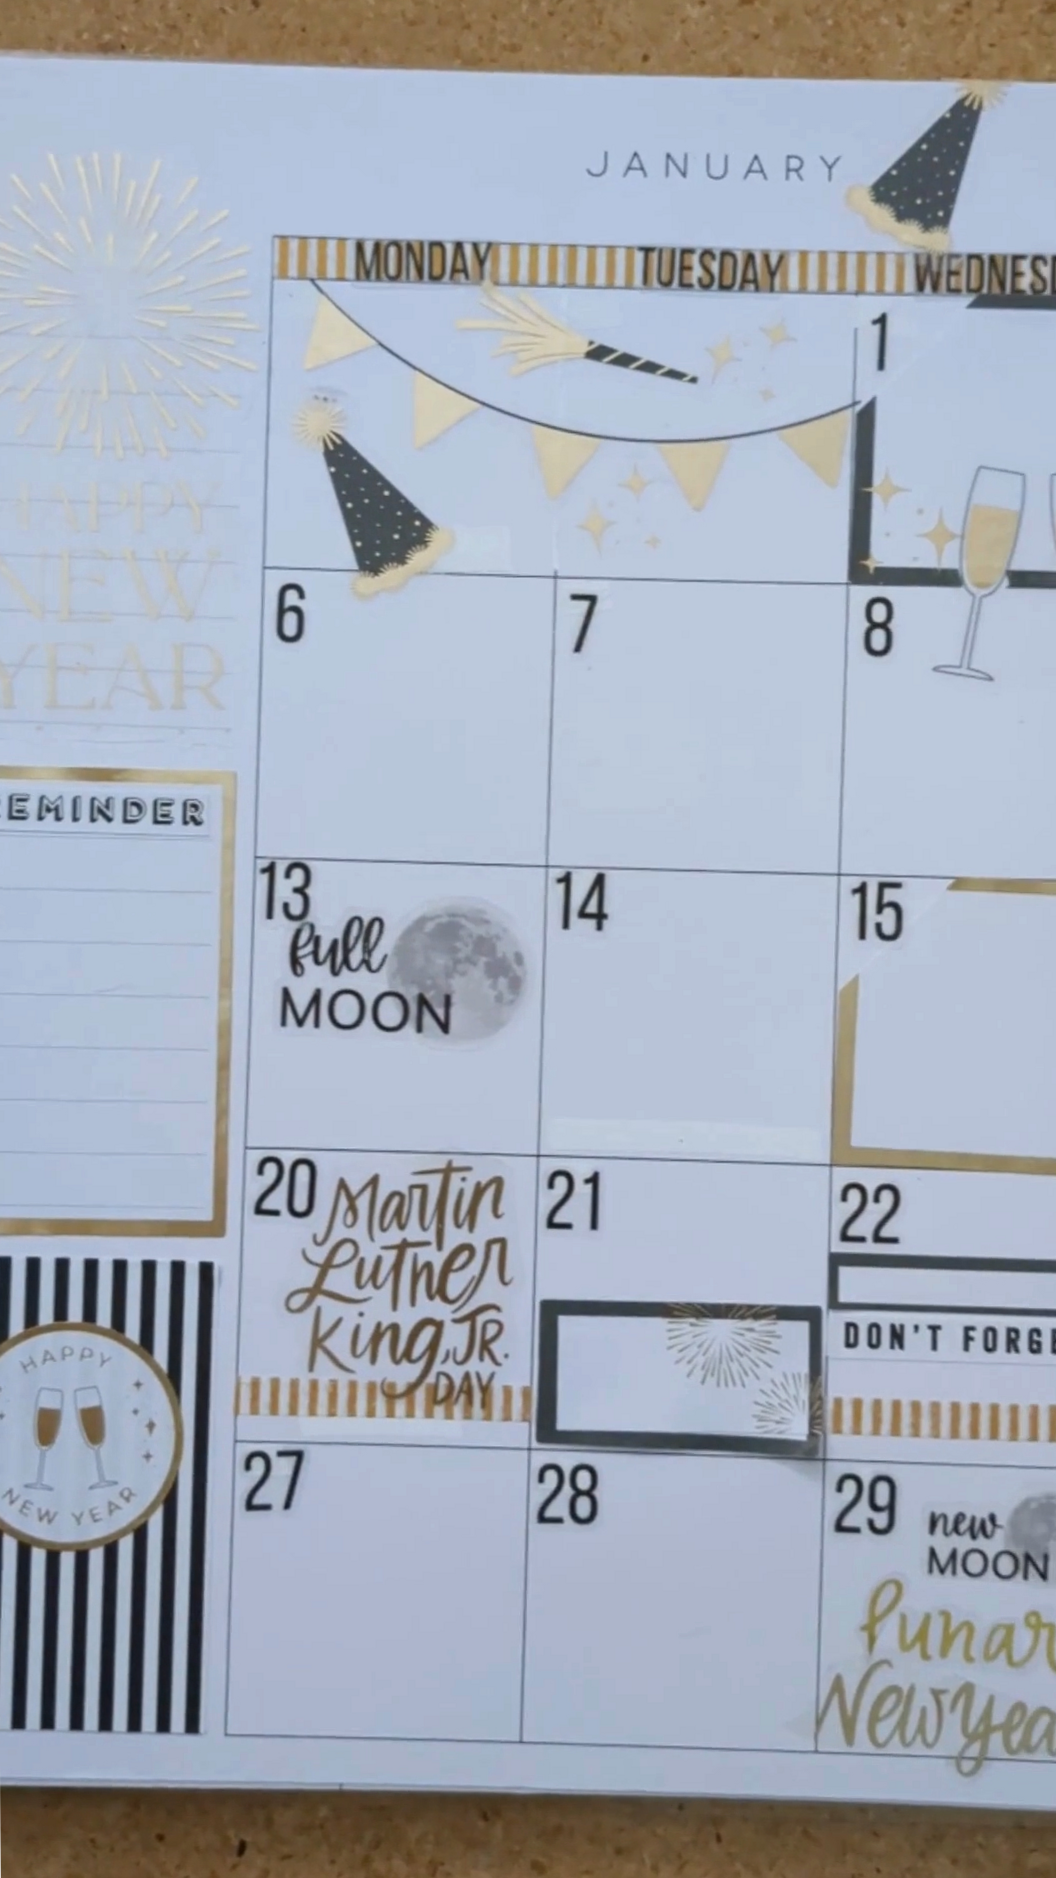 JANUARY
MONDAY TUESDAY
1
HAPPY
NEW
YEAR
6 7 8
REMINDER
13 14 15
full
MOON
20 21 22
Martin
Luther
King, JR.
DAY
DON'T
HAPPY
NEW YEAR
27 28 29
new
MOON
Lunar
New